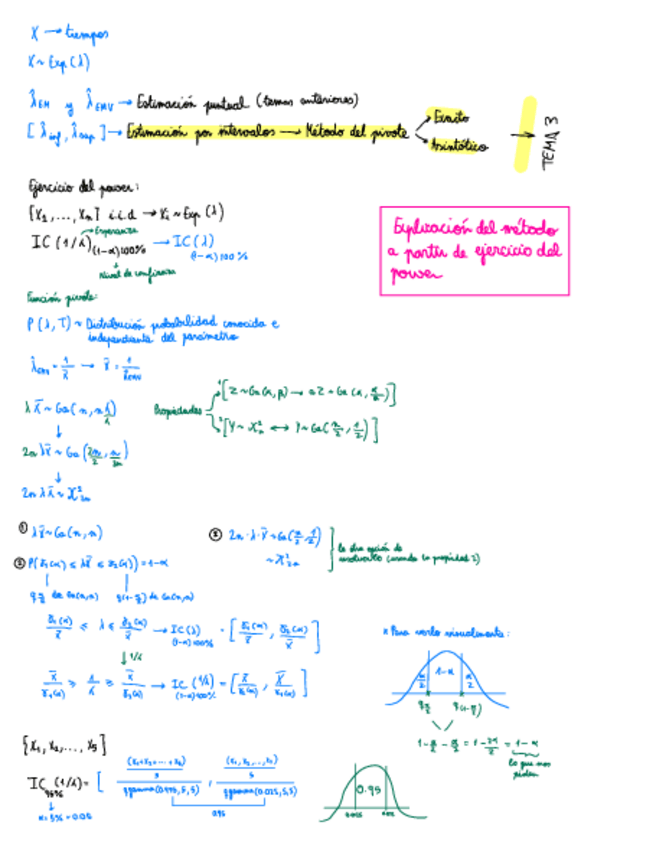 X → tiempos
X ~ Exp(λ)
λ̂EM y λ̂EMV → Estimación puntual (temas anteriores)
[λ̂inf, λ̂sup] → Estimación por intervalos → Método del pivote
Exacto
Asintótico
TEMA 3
Ejercicio del power:
[X₁, ..., Xₙ] i.i.d → Xᵢ ~ Exp(λ)
Esperanza
IC (1/λ)(1-α)100% → IC(λ)(1-α)100%
Nivel de confianza
Explicación del método
a partir de ejercicio del
power
Función pivote:
P(λ, T) ~ Distribución probabilidad conocida e
independiente del parámetro
λ̂EMV = 1/x̄ → x̄ = 1/λ̂EMV
λ x̄ ~ Ga(n, n λ/λ)
Propiedades
¹[Z ~ Ga(α, β) → aZ ~ Ga(α, β/a)]
²[Y ~ X²ₙ ↔ Y ~ Ga(n/2, 1/2)]
2n λx̄ ~ Ga(2n/2, n/2n)
2n λ x̄ ~ X²₂ₙ
① λx̄ ~ Ga(n, n)
② 2n · λ · x̄ ~ Ga(n/2, 1/2)
~ X²₂ₙ
la otra opción de
resolverlo (usando la propiedad 2)
P(γ₁(α) ≤ λx̄ ≤ γ₂(α)) = 1-α
q α/2 de Ga(n,n) q(1-α/2) de Ga(n,n)
γ₁(α)/x̄ ≤ λ ≤ γ₂(α)/x̄ → IC(λ)(1-α)100% = [γ₁(α)/x̄, γ₂(α)/x̄]
↓ 1/λ
x̄/γ₁(α) ≥ 1/λ ≥ x̄/γ₂(α) → IC(1/λ)(1-α)100% = [x̄/γ₂(α), x̄/γ₁(α)]
* Para verlo visualmente:
α/2 1-α α/2
q α/2 q(1-α/2)
1 - α/2 - α/2 = 1 - 2α/2 = 1-α
lo que nos
piden
[X₁, X₂, ..., X₅]
IC95% (1/λ) = [ (X₁+X₂+...+X₅)/5 / qgamma(0.975,5,5) , (X₁,X₂,...,X₅)/5 / qgamma(0.025,5,5)
0.95
α = 5% = 0.05
0.95
0.025